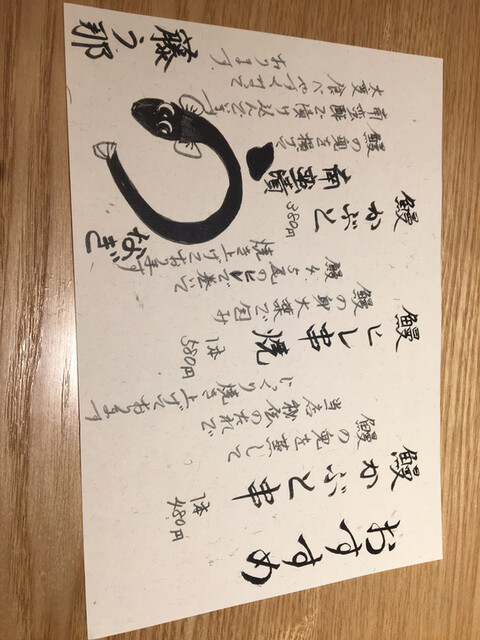 おすすめ
鰻かぶと串
1本
480円
鰻の兜を蒸して
当店秘伝のたれで
じっくり焼き上げております
鰻ヒレ串焼
1本
580円
鰻の身大葉で包み
鰻4、5尾のヒレで巻いて
焼き上げております
鰻かぶと
南蛮漬
380円
鰻の兜を揚げて
南蛮酢で漬け込んでいます
大変食べやすくなって
おります
なぎ
藤う那